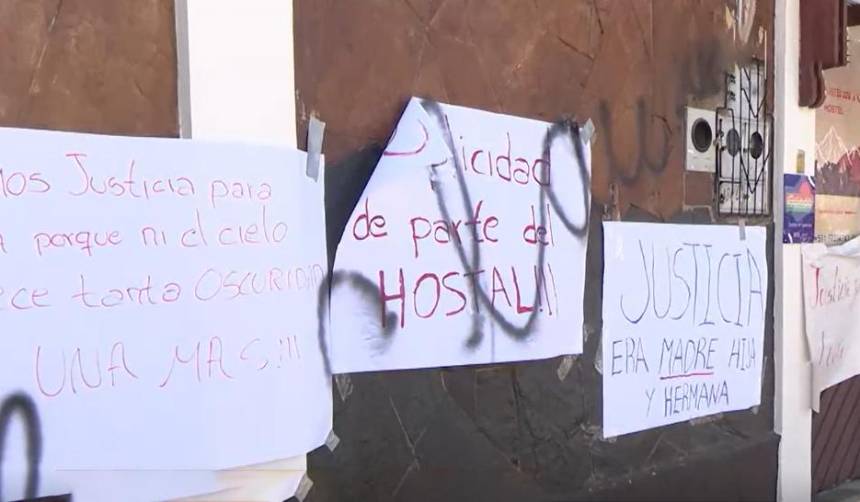 MOS JUSTICIA PARA
porque ni el cielo
ece tanta OSCURIDAD
UNA MAS!!!
icidad
de parte del
HOSTAL!!!
JUSTICIA
ERA MADRE HIJA
Y HERMANA
Justicia
HOSTEL